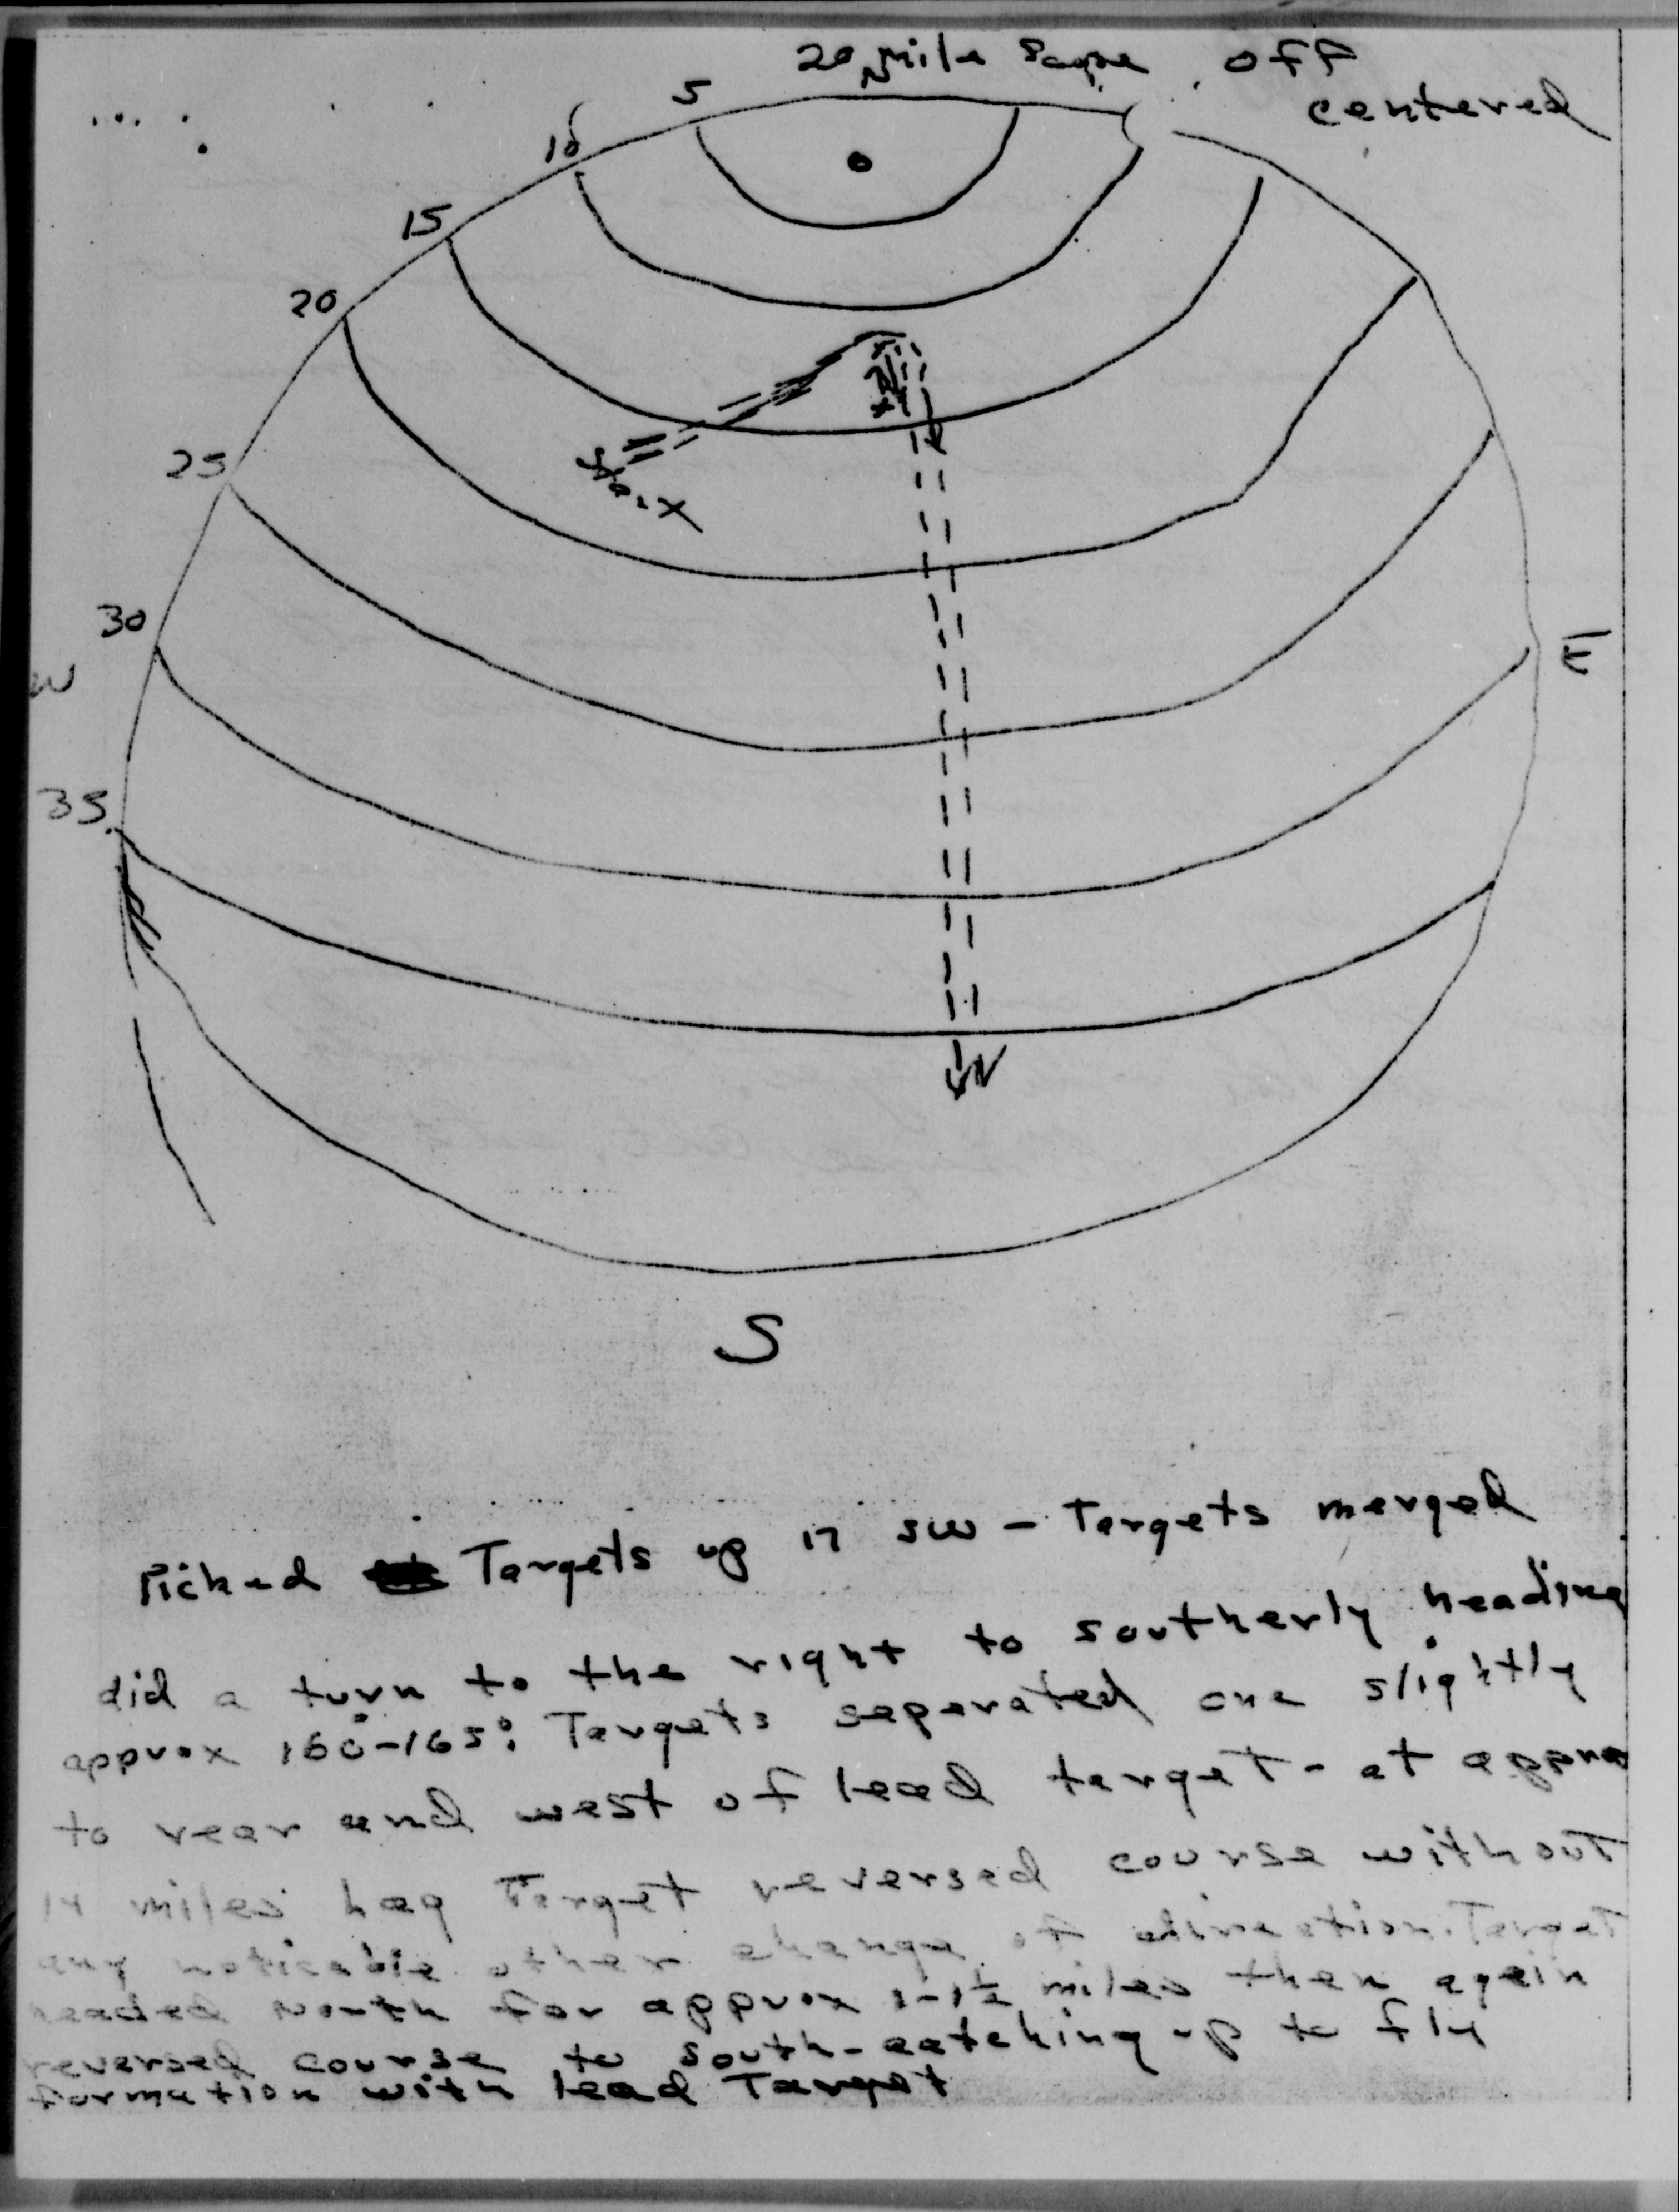 20 mile Scope off
centered
5
10
15
20
25
30
W
E
35
S
Picked Targets up in SW - Targets merged
did a turn to the right to southerly heading
approx 160°-165°. Targets separated one slightly
to rear and west of lead target - at approx
14 miles Lag Target reversed course without
any noticable other change of direction. Target
headed North for approx 1-1½ miles then again
reversed course to south - catching up to fly
formation with lead Target